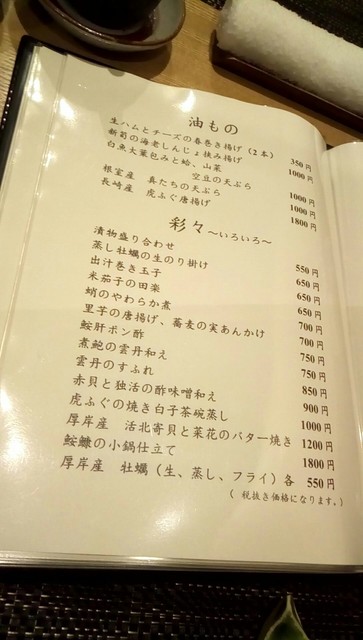 油もの
生ハムとチーズの春巻き揚げ(2本) 350円
新筍の海老しんじょ挟み揚げ 1000円
白魚大葉包みと蛤、山菜
空豆の天ぷら 1000円
根室産 真たちの天ぷら 1000円
長崎産 虎ふぐ唐揚げ 1800円
彩々 ～いろいろ～
漬物盛り合わせ 550円
蒸し牡蠣の生のり掛け 650円
出汁巻き玉子 650円
米茄子の田楽 650円
蛸のやわらか煮 700円
里芋の唐揚げ、蕎麦の実あんかけ 700円
鮟肝ポン酢 750円
煮鮑の雲丹和え 750円
雲丹のすふれ 850円
赤貝と独活の酢味噌和え 900円
虎ふぐの焼き白子茶碗蒸し 1000円
厚岸産 活北寄貝と菜花のバター焼き 1200円
鮟鱇の小鍋仕立て 1800円
厚岸産 牡蠣(生、蒸し、フライ)各 550円
(税抜き価格になります。)